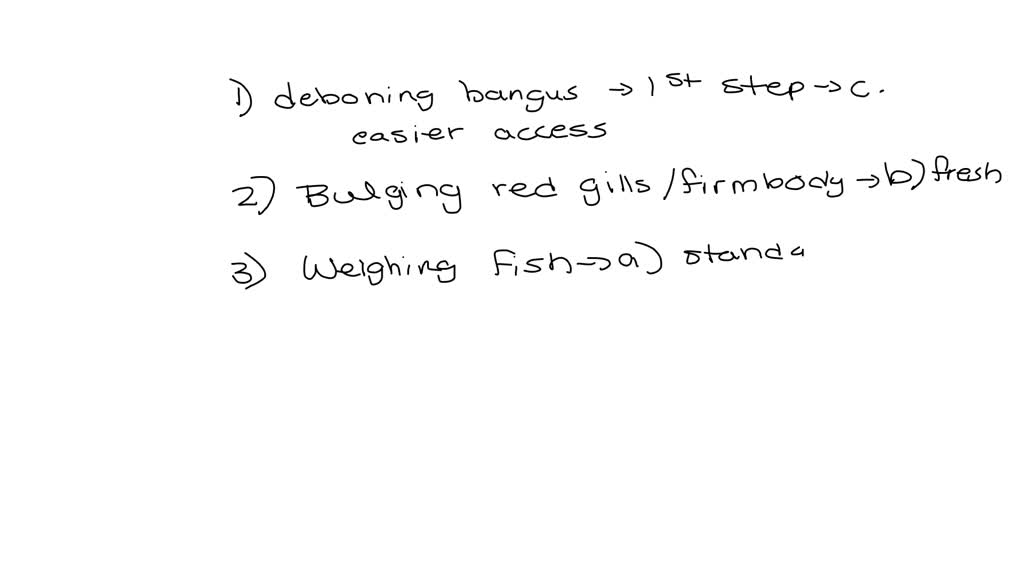 1) deboning bangus → 1st step → c.
easier access
2) Bulging red gills / firmbody → b) fresh
3) Weighing fish → a) standa